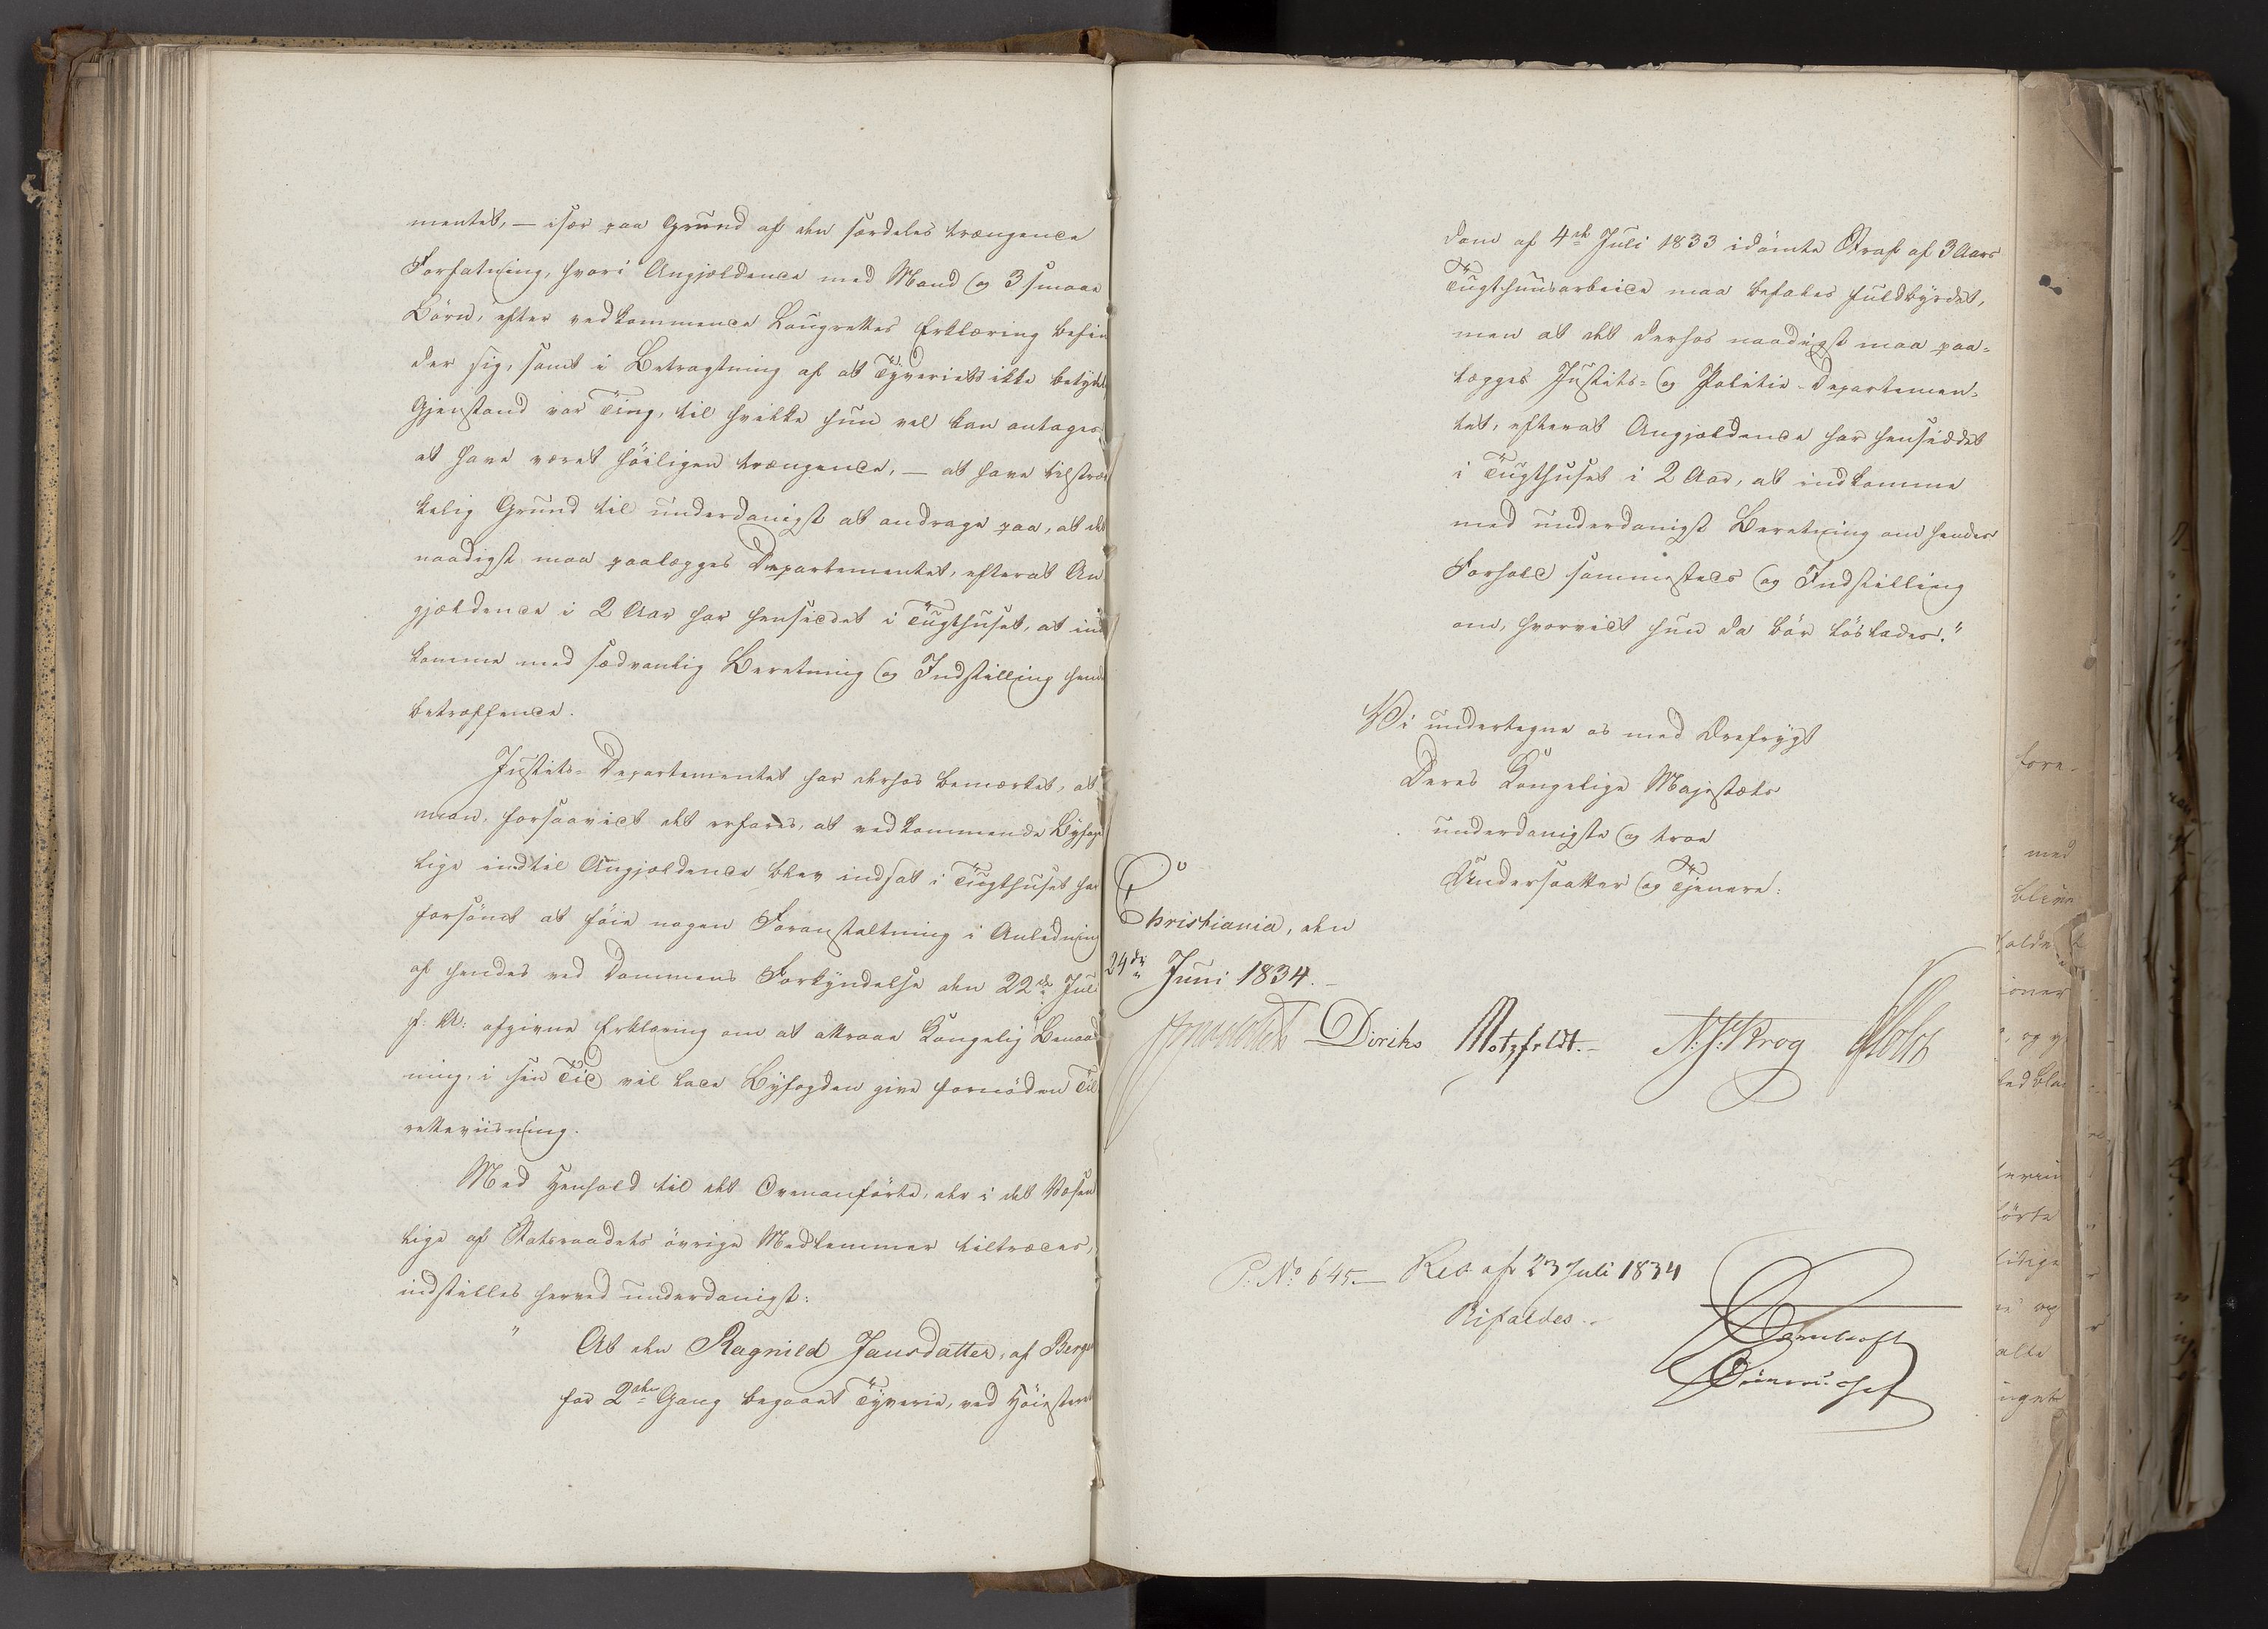 mentet, — især paa Grund af den særdeles trængende
Forfatning, hvori Angjældende med Mand og 3 smaae
Børn, efter vedkommende Laugrettes Erklæring befin
der sig, samt i Betragtning af at Tyveriets ikke betyde
Gjenstand var Ting, til hvilke hun vel kan antages
at have været høiligen trængende, — at have tilstræk
kelig Grund til underdanigst at andrage paa, at det
naadigst maa paalægges Departementet, efterat An
gjældende i 2 Aar har hensiddet i Tugthuset, at ind
komme med sædvanlig Beretning og Indstilling hende
betræffende.
Justits-Departementet har derhos bemærket, at
man, forsaavidt det erfares, at vedkommende Byfoge
lige indtil Angjældende blev indsat i Tugthuset har
forsømt at føie nogen Foranstaltning i Anledning
af hendes ved Dommens Forkyndelse den 22de Juli
f: A: afgivne Erklæring om at attraae Kongelig Benaad
ning, i sin Tid vil lade Byfogden give fornøden Til
retteviisning.
Med Henhold til det Ovenanførte, der i det Væsen
lige af Statsraadets øvrige Medlemmer tiltrædes,
indstilles herved underdanigst:
" At den Ragnild Jansdatter, af Berge
for 2den Gang begaaet Tyverie, ved Høiesteret
dom af 4de Juli 1833 idømte Straf af 3 Aars
Tugthuusarbeide maa befales fuldbyrdet,
men at det derhos naadigst maa paa-
lægges Justits- og Politie-Departemen-
tet, efterat Angjældende har hensiddet
i Tugthuset i 2 Aar, at indkomme
med underdanigst Beretning om hendes
Forhold sammesteds og Indstilling
om, hvorvidt hun da bør løslades."
Vi undertegne os med Ærefrygt
Deres Kongelige Majestæts
underdanigste og troe
Undersaatter og Tjenere:
Christiania, den
24de Juni 1834.
Diriks Motzfeldt. N. J. Krog Holst
P. No 645.— Res. af 23 Juli 1834
Bifaldes.